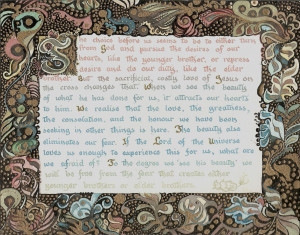 The choice before us seems to be to either turn
from God and pursue the desires of our
hearts, like the younger brother, or repress
desire and do our duty, like the elder
brother. But the sacrificial, costly love of Jesus on
the cross changes that. When we see the beauty
of what he has done for us, it attracts our hearts
to him. We realize that the love, the greatness,
the consolation, and the honour we have been
seeking in other things is here. The beauty also
eliminates our fear. If the Lord of the Universe
loves us enough to experience this for us, what are
we afraid of? To the degree we "see his beauty" we
will be free from the fear that creates either
younger brothers or elder